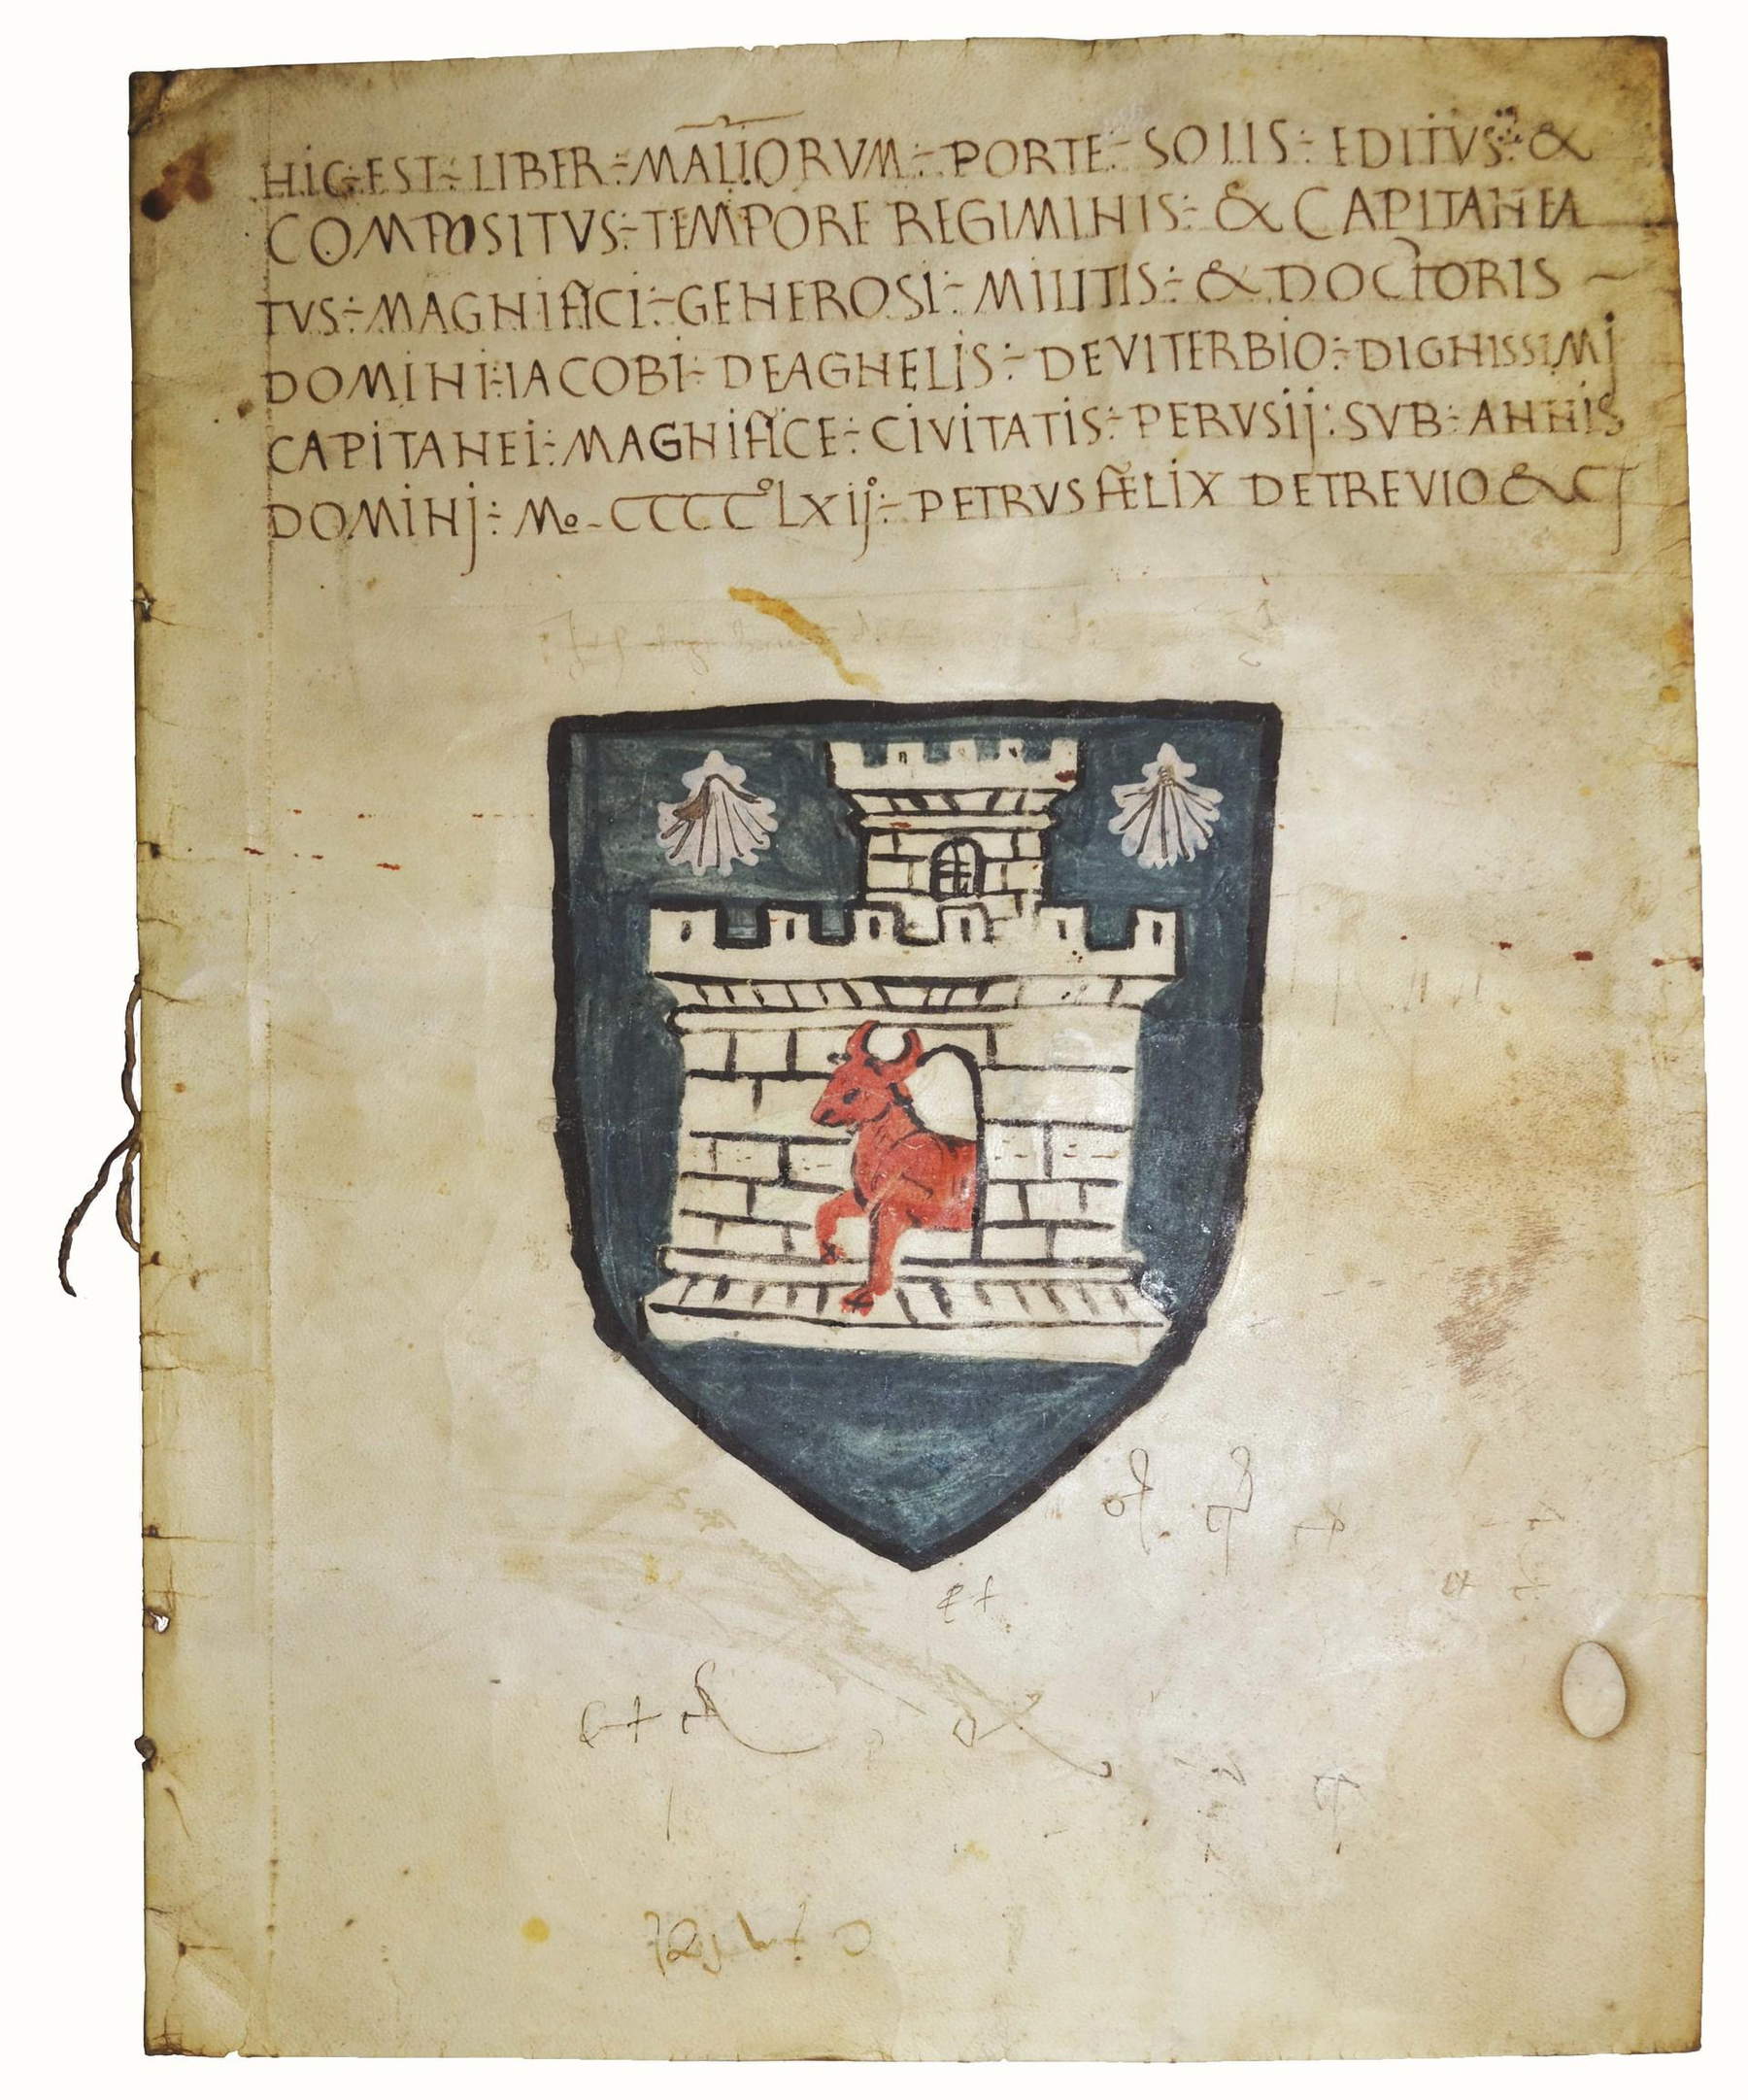 HIC÷EST÷LIBER÷MALIORVM÷PORTE÷SOLIS÷EDITVS÷&
COMPOSITVS÷TEMPORE REGIMINIS÷& CAPITANEA
TVS÷MAGNIFICI÷GENEROSI÷MILITIS÷&DOCTORIS ~
DOMINI÷IACOBI÷DEAGNELIS÷DEVITERBIO÷DIGNISSIMJ
CAPITANEI÷MAGNIFICE÷CIVITATIS÷PERVSIJ÷SVB÷ANNIS
DOMINJ÷Mo-CCCCºLXIJº÷PETRVSFELIX DETREVIO&CT
et